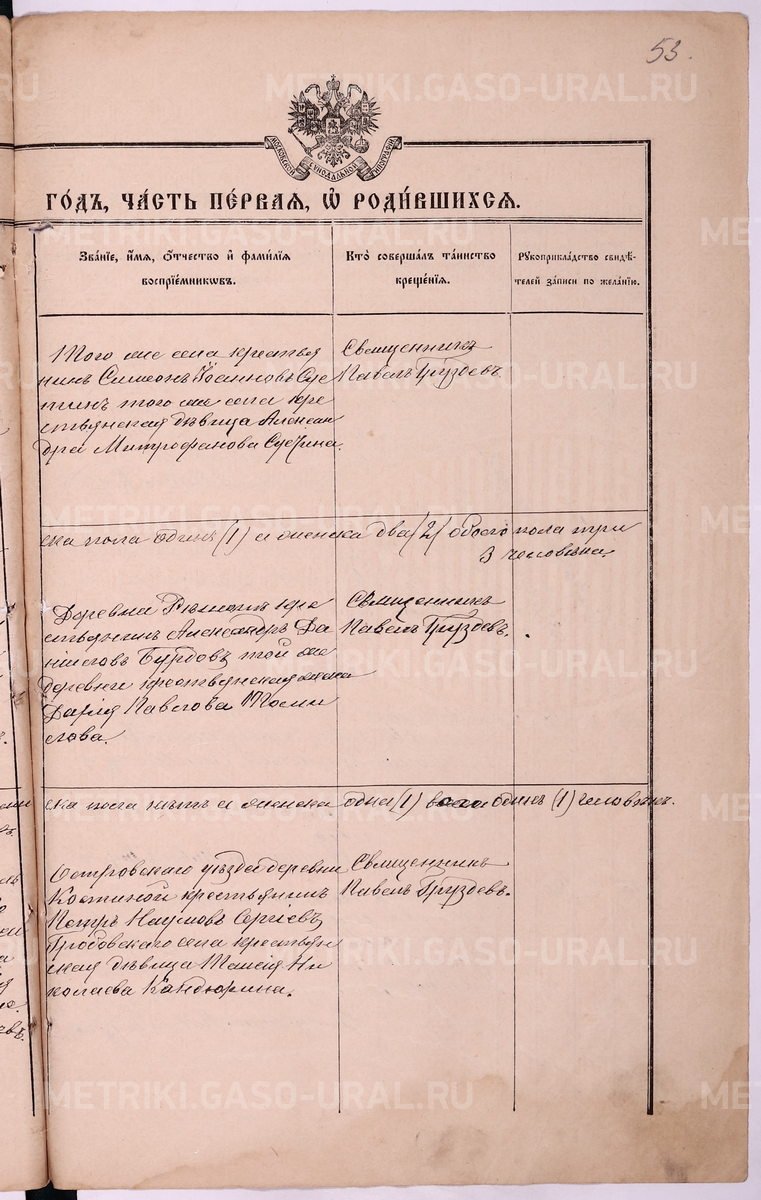 53.
МОСКОВСКОЙ СУНОДАЛЬНОЙ ТИПОГРАФІИ
ГО́ДЪ, ЧА́СТЬ ПЕ́РВАЯ, Ѡ РОДИ́ВШИХСЯ.
Зва́нїе, и́мя, Ѻтчество и фами́лїя
воспрїе́мникѡвъ.
Кто̀ соверша́лъ та́инство
креще́нїя.
Рукоприкла́дство свидѣ́-
телей за́писи по жела́нїю.
Того же села крестья
нинъ Симеонъ Іоанновъ
того же села кре
стьянская дѣвица Алексан
дра Митрофанова
Священникъ
Павелъ Груздевъ.
ска пола одинъ (1) и женска два (2) обоего пола три
3 человѣка.
Деревни кре
стьянинъ Александръ Да
ниловъ Бурдовъ той же
деревни крестьянская жена
Дарія Павлова Томи
лова.
Священникъ
Павелъ Груздевъ.
ска пола нѣтъ и женска одна (1) всего одинъ (1) человѣкъ.
Островскаго уѣзда деревни
Костиной крестьянинъ
Петръ Наумовъ Сергіевъ
Гробовскаго села крестьян
ская дѣвица Таисія Ни
колаева Кандюрина.
Священникъ
Павелъ Груздевъ.
METRIKI.GASO-URAL.RU